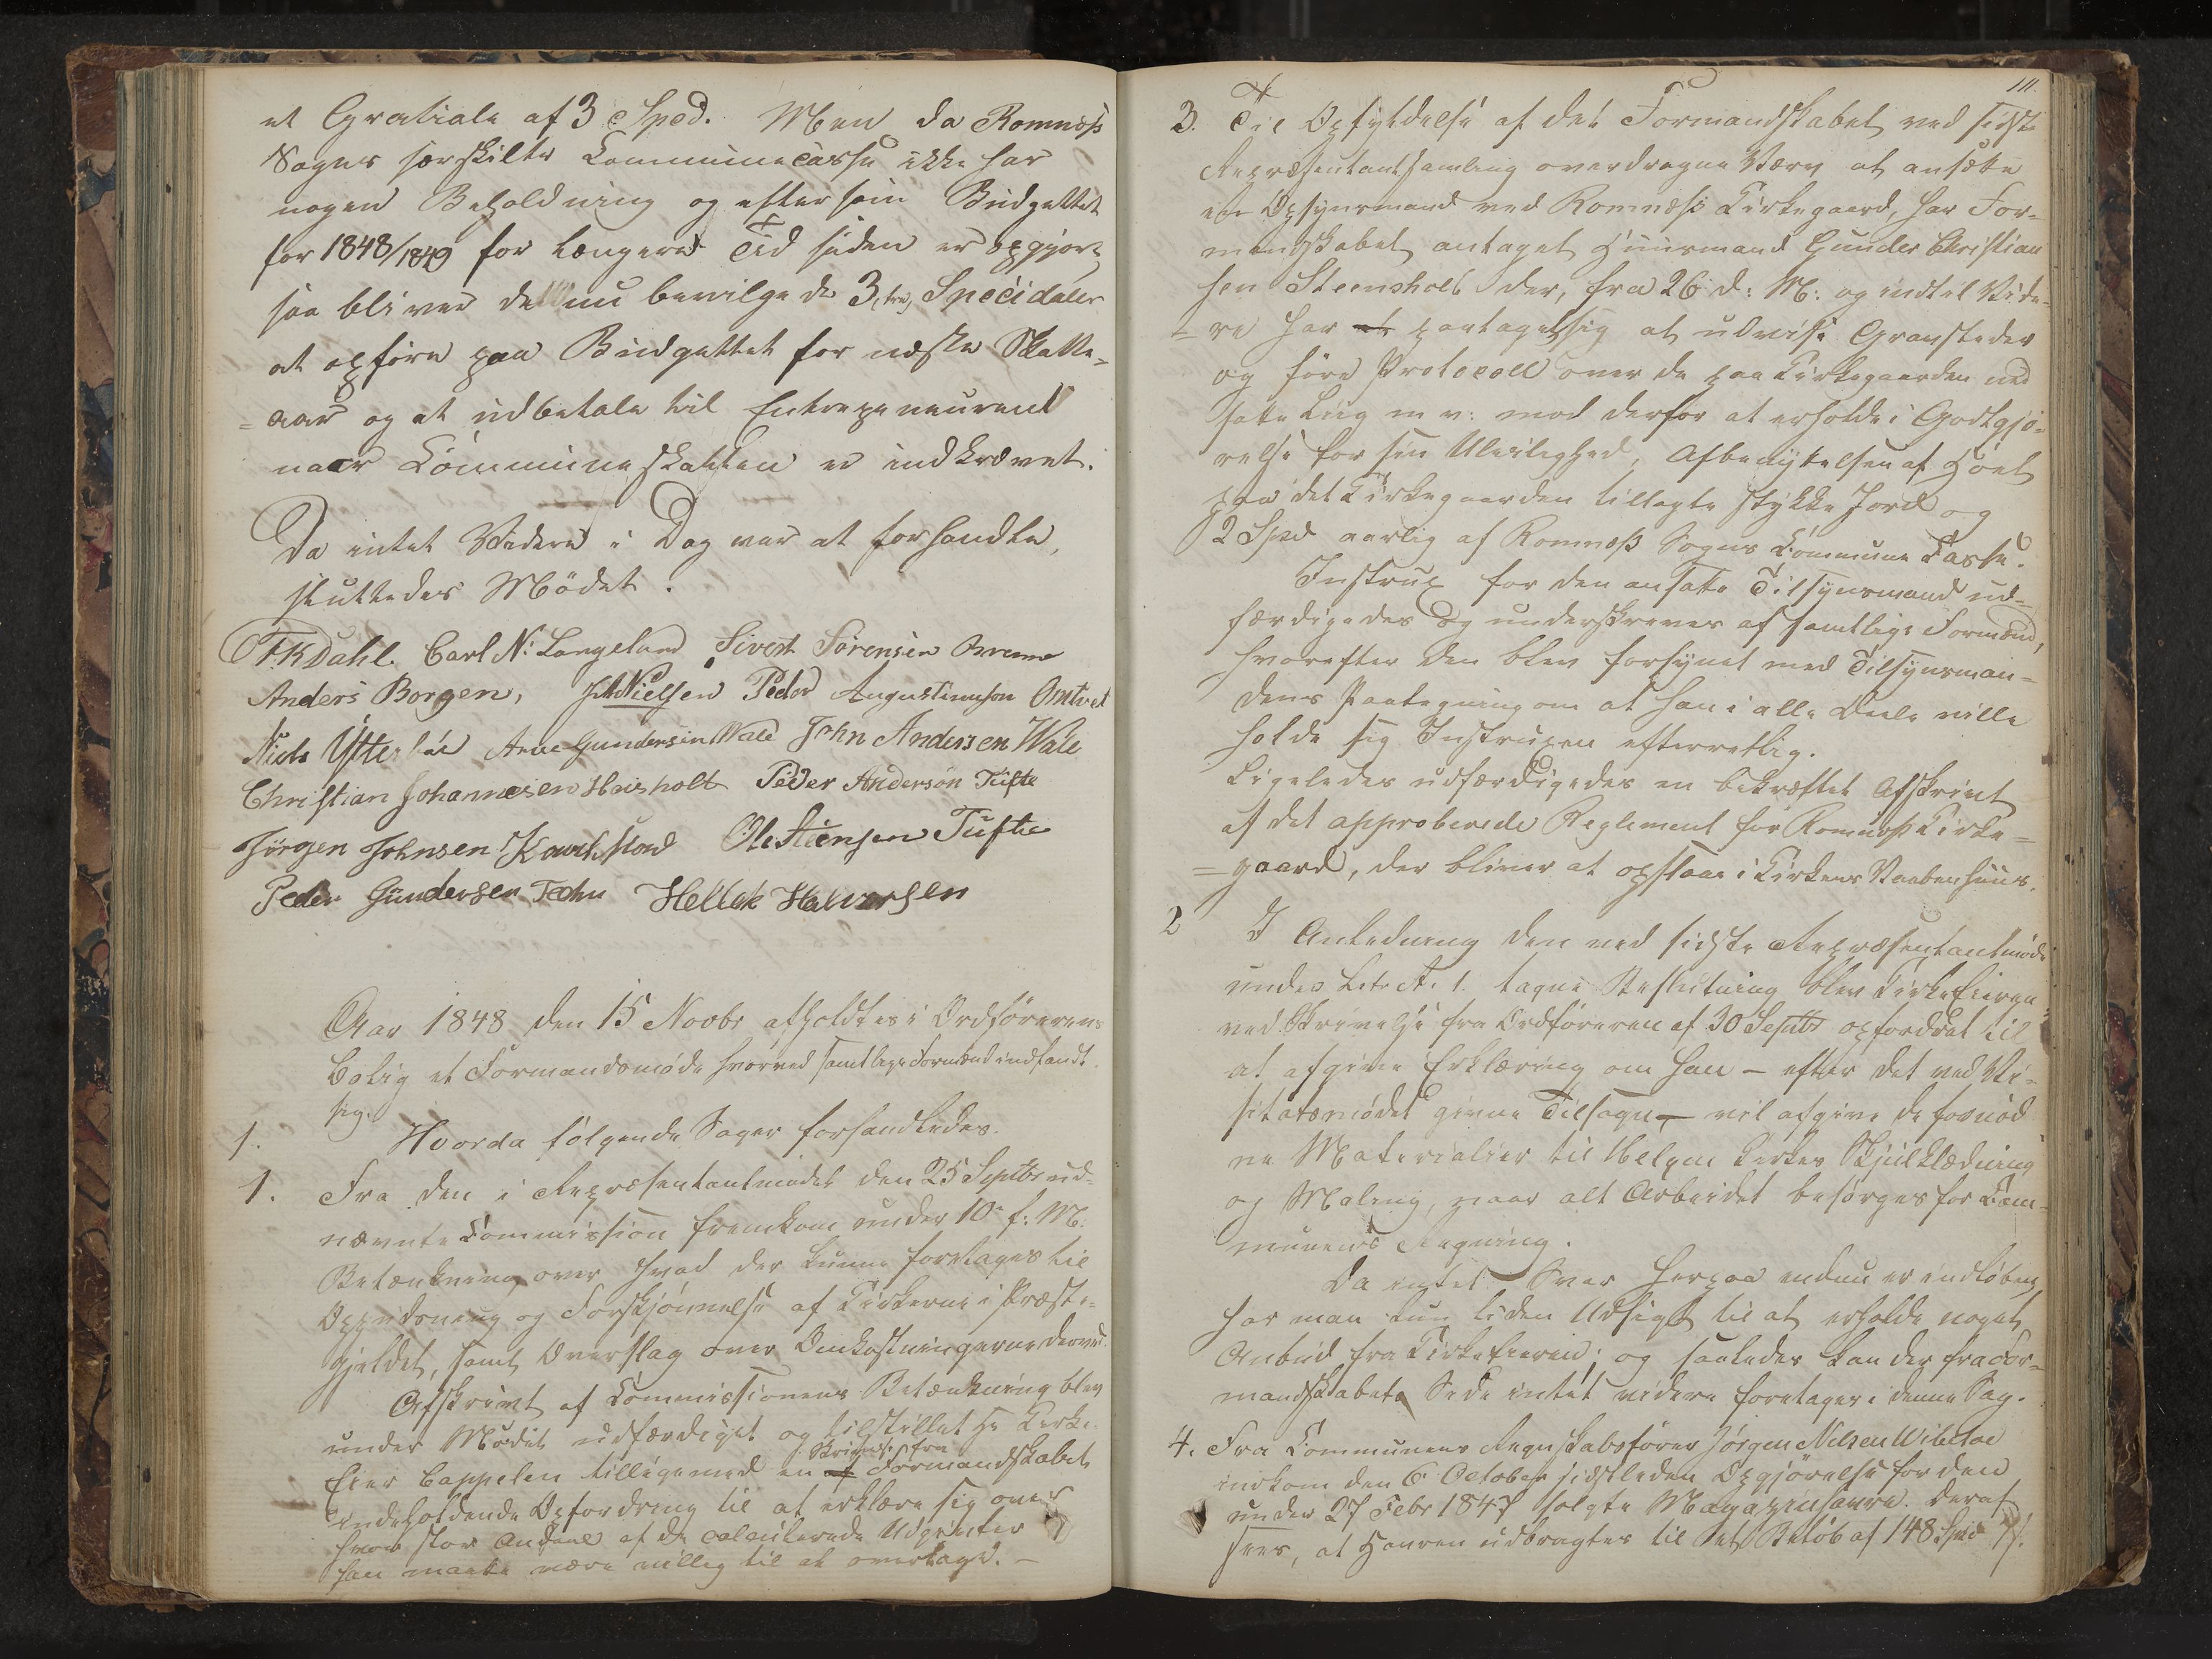 et Gratiale af 3 Spd. Men da Romnæs
Sogns særskilte Communecasse ikke har
nogen Beholdning og eftersom Budgettet
for 1848/1849 for længere Tid siden er opgjort
saa bliver de nu bevilgede 3, tre, Speciedaler
at opføre paa Budgettet for næste Skatte-
=aar og at udbetale til Entrepeneuren
naar Communeskatten er indkrævet.
Da intet Videre i Dag var at forhandle,
sluttedes Mødet.
F.K Dahl. Carl N: Langeland Sivert Sørensen
Anders Borgen, Nielsen Peder Augustinusson Omtvet
Niels Ytterbøe Arne Gundersen Wale John Andersen Wale
Christian Johannesen Heisholt Peder Anderson Tufte
Jørgen Johnsen Ole Stiensen Tufte
Peder Gundersen Hellek Halvorsen
Aar 1848 den 15 Novbr afholdtes i Ordførerens
Bolig et Formandsmøde hvorved samtlige Formænd indfandt
sig.
1. Hvorda følgende Sager forhandledes.
1. Fra den i Repræsentantmødet den 25 Septbr ud-
nævnte Commission fremkom under 10de f: M:
Betænkning over hvad der kunne foretages til
Oppudsning og Forskjønnelse af Kirkerne i Præste-
gjeldet, samt Overslag over Omkostningerne derved.
Afskrivt af Commissionens Betænkning blev
under Mødet udfærdiget og tilstillet Hr Kirke-
Skrivelse fra
Eier Cappelen tilligemed en af Formandskabet
indeholdende Opfordring til at erklære sig over
hvor stor Andeel af de calculerede Udgivter
han maatte være villig til at overtage. -
111.
3. Til Opfyldelse af det Formandskabet ved sidste
Repræsentantsamling overdragne Værv at ansætte
en Opsynsmand ved Romnæs Kirkegaard, har For-
mandskabet antaget Huusmand Gunder Christian
sen Steensholt der, fra 26 d: M: og indtil Vide-
=re har at paataget sig at udvise Gravsteder
og føre Protocoll over de paa Kirkegaarden ned
satte Liig m v: mod derfor at erholde i Godtgjø-
relse for sin Uleilighed, Afbenyttelsen af Høet
paa det Kirkegaarden tillagte Stykke Jord og
2 Spd aarlig af Romnæs Sogns Commune Casse.
Instrux for den ansatte Tilsynsmand ud-
færdigedes og underskreves af samtlige Formænd,
hvorefter den blev forsynet med Tilsynsman-
dens Paategning om at han i alle Dele ville
holde sig Instruxen efterrettlig.
Ligeledes udfærdigedes en bekræftet Afskrivt
af det approberede Reglement for Romnæs Kirke-
=gaard, der bliver at opslaae i Kirkens Vaabenhuus.
2 I Anledning den ved sidste Repræsentantmøde
under Litr A. 1. tagne Beslutning blev Kirkeeieren
ved Skrivelse fra Ordføreren af 30 Septbr opfordret til
at afgive Erklæring om han - efter det ved Vi-
sitatsmødet givne Tilsagn - vil afgive de fornød
ne Materialier til Helgen Kirkes Skjulklædning
og Maling, naar alt Arbeidet besørges for Com-
munens Regning.
Da intet Svar herpaa endnu er indløben,
har man kun liden Udsigt til at erholde noget
Anbud fra Kirkeeieren; og saaledes kan der fra For-
mandskabets Side intet videre foretages i denne Sag.
4. Fra Communens Regnskabsfører Jørgen Nilsen Wibetoe
indkom den 6 October sidstleden Opgjørelse for den
under 27 Febr 1847 solgte Magazinhavre. Deraf
sees, at Havren udbragtes til et Beløb af 148 Spd